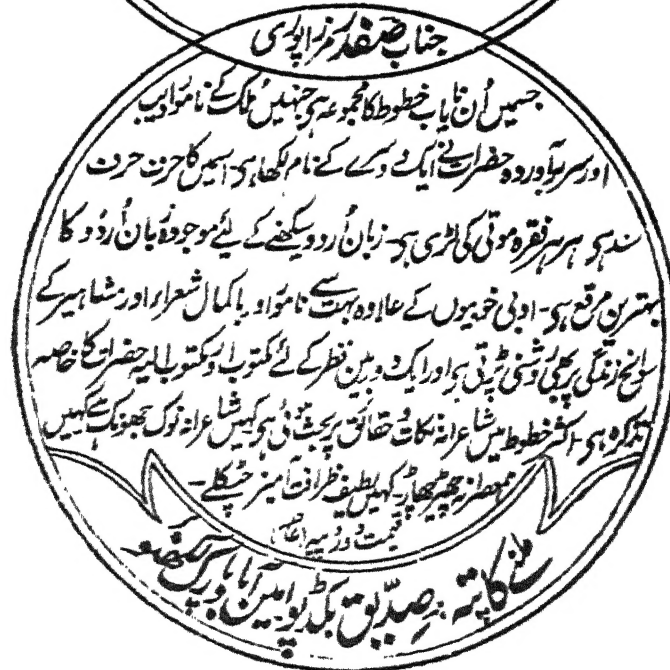 جناب صفدر مرزا پوری
جسمیں اُن نایاب خطوط کا مجموعہ ہی جنہیں مُلک کے نامور ادیب
اور سربرآوردہ حضرات نے ایک دوسرے کے نام لکھا ہی۔ اسمیں کا حرف حرف
سند ہی ہر ہر فقرہ موتی کی لڑی ہی۔ زبان اُردو سیکھنے کے لئے موجودہ زبان اُردو کا
بہترین مرقع ہی۔ ادبی خوبیوں کے علاوہ بہت سے نامور اور باکمال شعراء اور مشاہیر کے
سوانح زندگی پر بھی روشنی پڑتی ہی اور ایک دوربین نظر کے لئے مکتوب اور مکتوب الیہ حضرات کا خاصہ
تذکرہ ہی۔ اکثر خطوط میں شاعرانہ نکات و حقائق پر بحث ہوئی ہی کہیں شاعرانہ نوک جھونک ہے کہیں
ہمعصرانہ چھیڑ چھاڑ۔ کہیں لطیف ظرافت آمیز چٹکلے۔
قیمت دو روپیہ
ملنے کا پتہ :۔ صدیق بکڈپو امین آباد پارک لکھنو